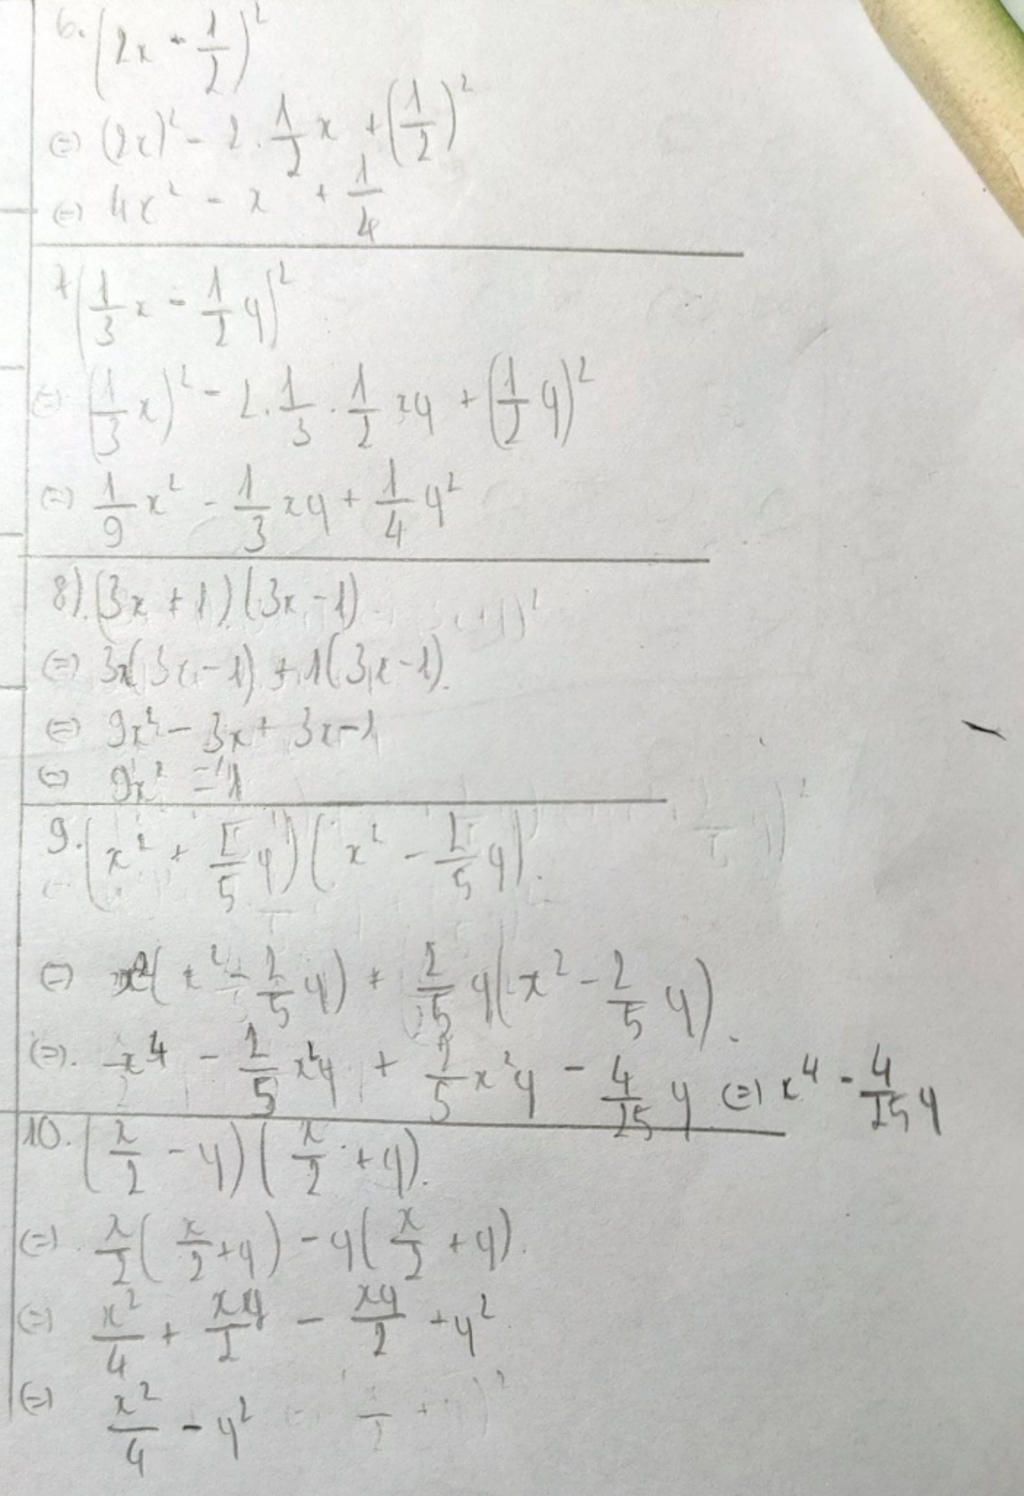 6. (2x - 1/2)²
(=) (2x)² - 2. 1/2 x + (1/2)²
(=) 4x² - x + 1/4
7 (1/3 x - 1/2 y)²
(=) (1/3 x)² - 2. 1/3 . 1/2 xy + (1/2 y)²
(=) 1/9 x² - 1/3 xy + 1/4 y²
8). (3x + 1)(3x - 1)
(=) 3x(3x - 1) + 1(3x - 1).
(=) 9x² - 3x + 3x - 1
(=) 9x² = 1
9. (x² + 2/5 y)(x² - 2/5 y).
(=) x²(x² - 2/5 y) + 2/5 y(x² - 2/5 y).
(=). x⁴ - 2/5 x²y + 2/5 x²y - 4/25 y (=) x⁴ - 4/25 y
10. (x/2 - y)(x/2 + y).
(=). x/2 (x/2 + y) - y(x/2 + y).
(=) x²/4 + xy/2 - xy/2 + y²
(=) x²/4 - y²